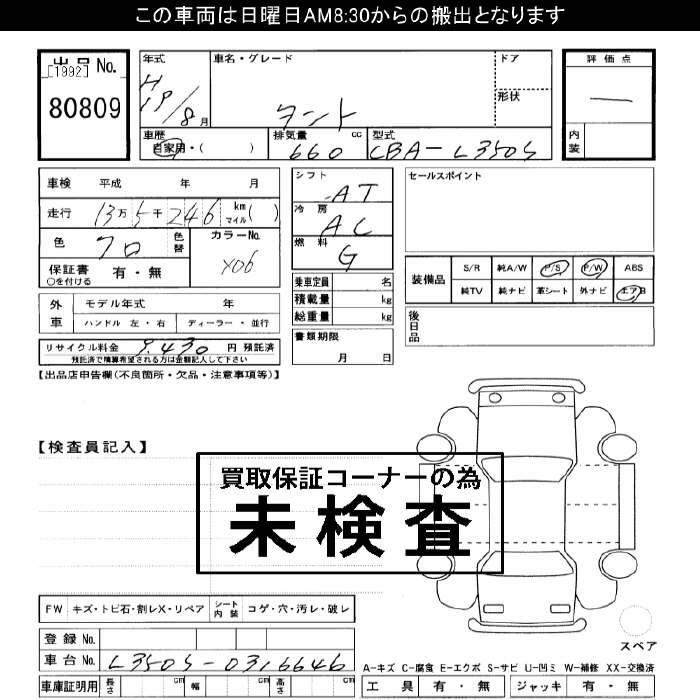 この車両は日曜日AM8:30からの搬出となります
出品No.
[1992]
80809
年式 車名・グレード ドア 評価点
H19/8月 タント 形状 —
車歴 排気量 cc 型式 内装
自家用・( ) 660 CBA-L350S
車検 平成 年 月 シフト AT セールスポイント
走行 13万5千246 km マイル( ) 冷房 AC
色 クロ 色替 カラーNo. X06 燃料 G
保証書 有・無
○を付ける
乗車定員 名 装備品 S/R 純A/W P/S P/W ABS
積載量 kg 純TV 純ナビ 革シート 外ナビ エアB
総重量 kg
外車 モデル年式 年
ハンドル 左・右 ディーラー・並行
後日品
書類期限
月 日
リサイクル料金 9,430 円 預託済
預託済で精算希望される方は金額記入して下さい
【出品店申告欄(不良箇所・欠品・注意事項等)】
【検査員記入】
買取保証コーナーの為
未検査
FW キズ・トビ石・割レX・リペア シート内装 コゲ・穴・汚レ・破レ
登録No.
スペア
車台No. L350S-0316646
A-キズ C-腐食 E-エクボ S-サビ U-凹ミ W-補修 XX-交換済
車庫証明用 長さ cm 幅 cm 高さ cm 工具 有・無 ジャッキ 有・無